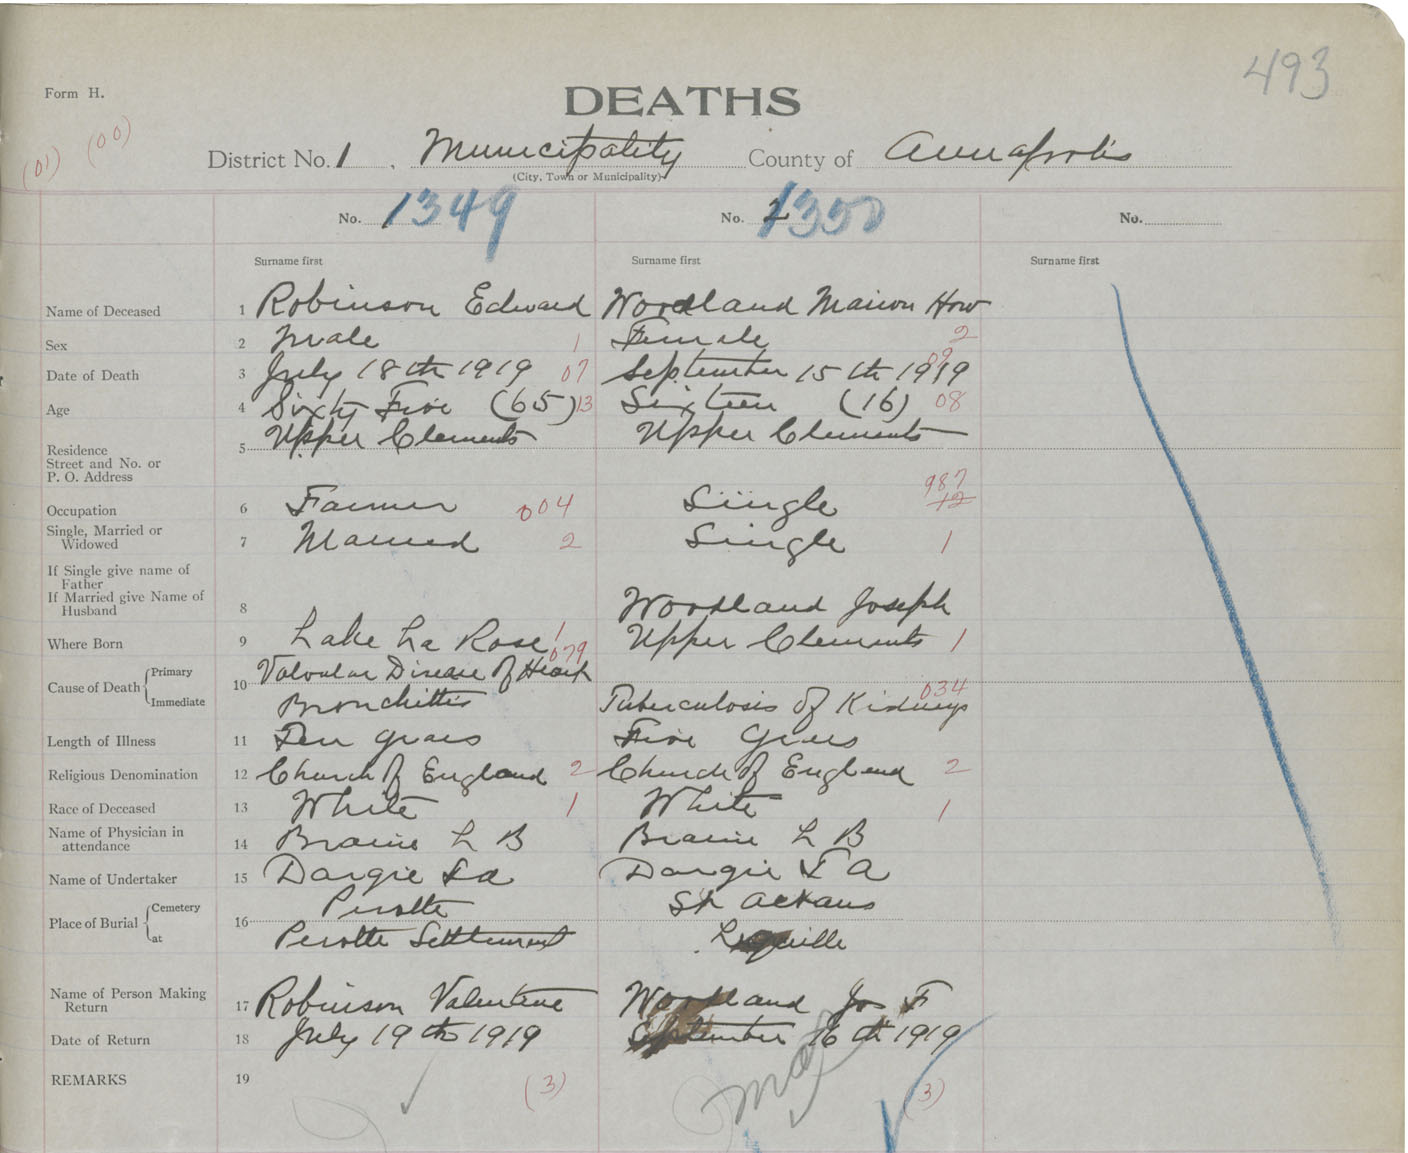 493
Form H.
DEATHS
(01) (00)
District No. 1, Municipality County of Annapolis
(City, Town or Municipality)
No. 1 1349 No. 2 1350 No.
Surname first Surname first Surname first
Name of Deceased 1 Robinson Edward Woodland Marion How
Sex 2 Male 1 Female 2
Date of Death 3 July 18th 1919 07 September 15th 1919 09
Age 4 Sixty Five (65) 13 Sixteen (16) 08
Residence
Street and No. or
P. O. Address
5 Upper Clements Upper Clements
987
Occupation 6 Farmer 004 Single 12
Single, Married or
Widowed
7 Married 2 Single 1
If Single give name of
Father
If Married give Name of
Husband
8 Woodland Joseph
Where Born 9 Lake La Rose 1 Upper Clements 1
079
Cause of Death Primary 10 Valvular Disease of Heart 034
Immediate Bronchittis Tuberculosis of Kidneys
Length of Illness 11 Ten years Five years
Religious Denomination 12 Church of England 2 Church of England 2
Race of Deceased 13 White 1 White 1
Name of Physician in
attendance
14 Braine L B Braine L B
Name of Undertaker 15 Dargie I a Dargie I A
Place of Burial Cemetery 16 Perotte St
at Perotte Settlement Lequille
Name of Person Making
Return
17 Robinson Valentine Woodland Jos F
Date of Return 18 July 19th 1919 September 16th 1919
REMARKS 19 (3) (3)